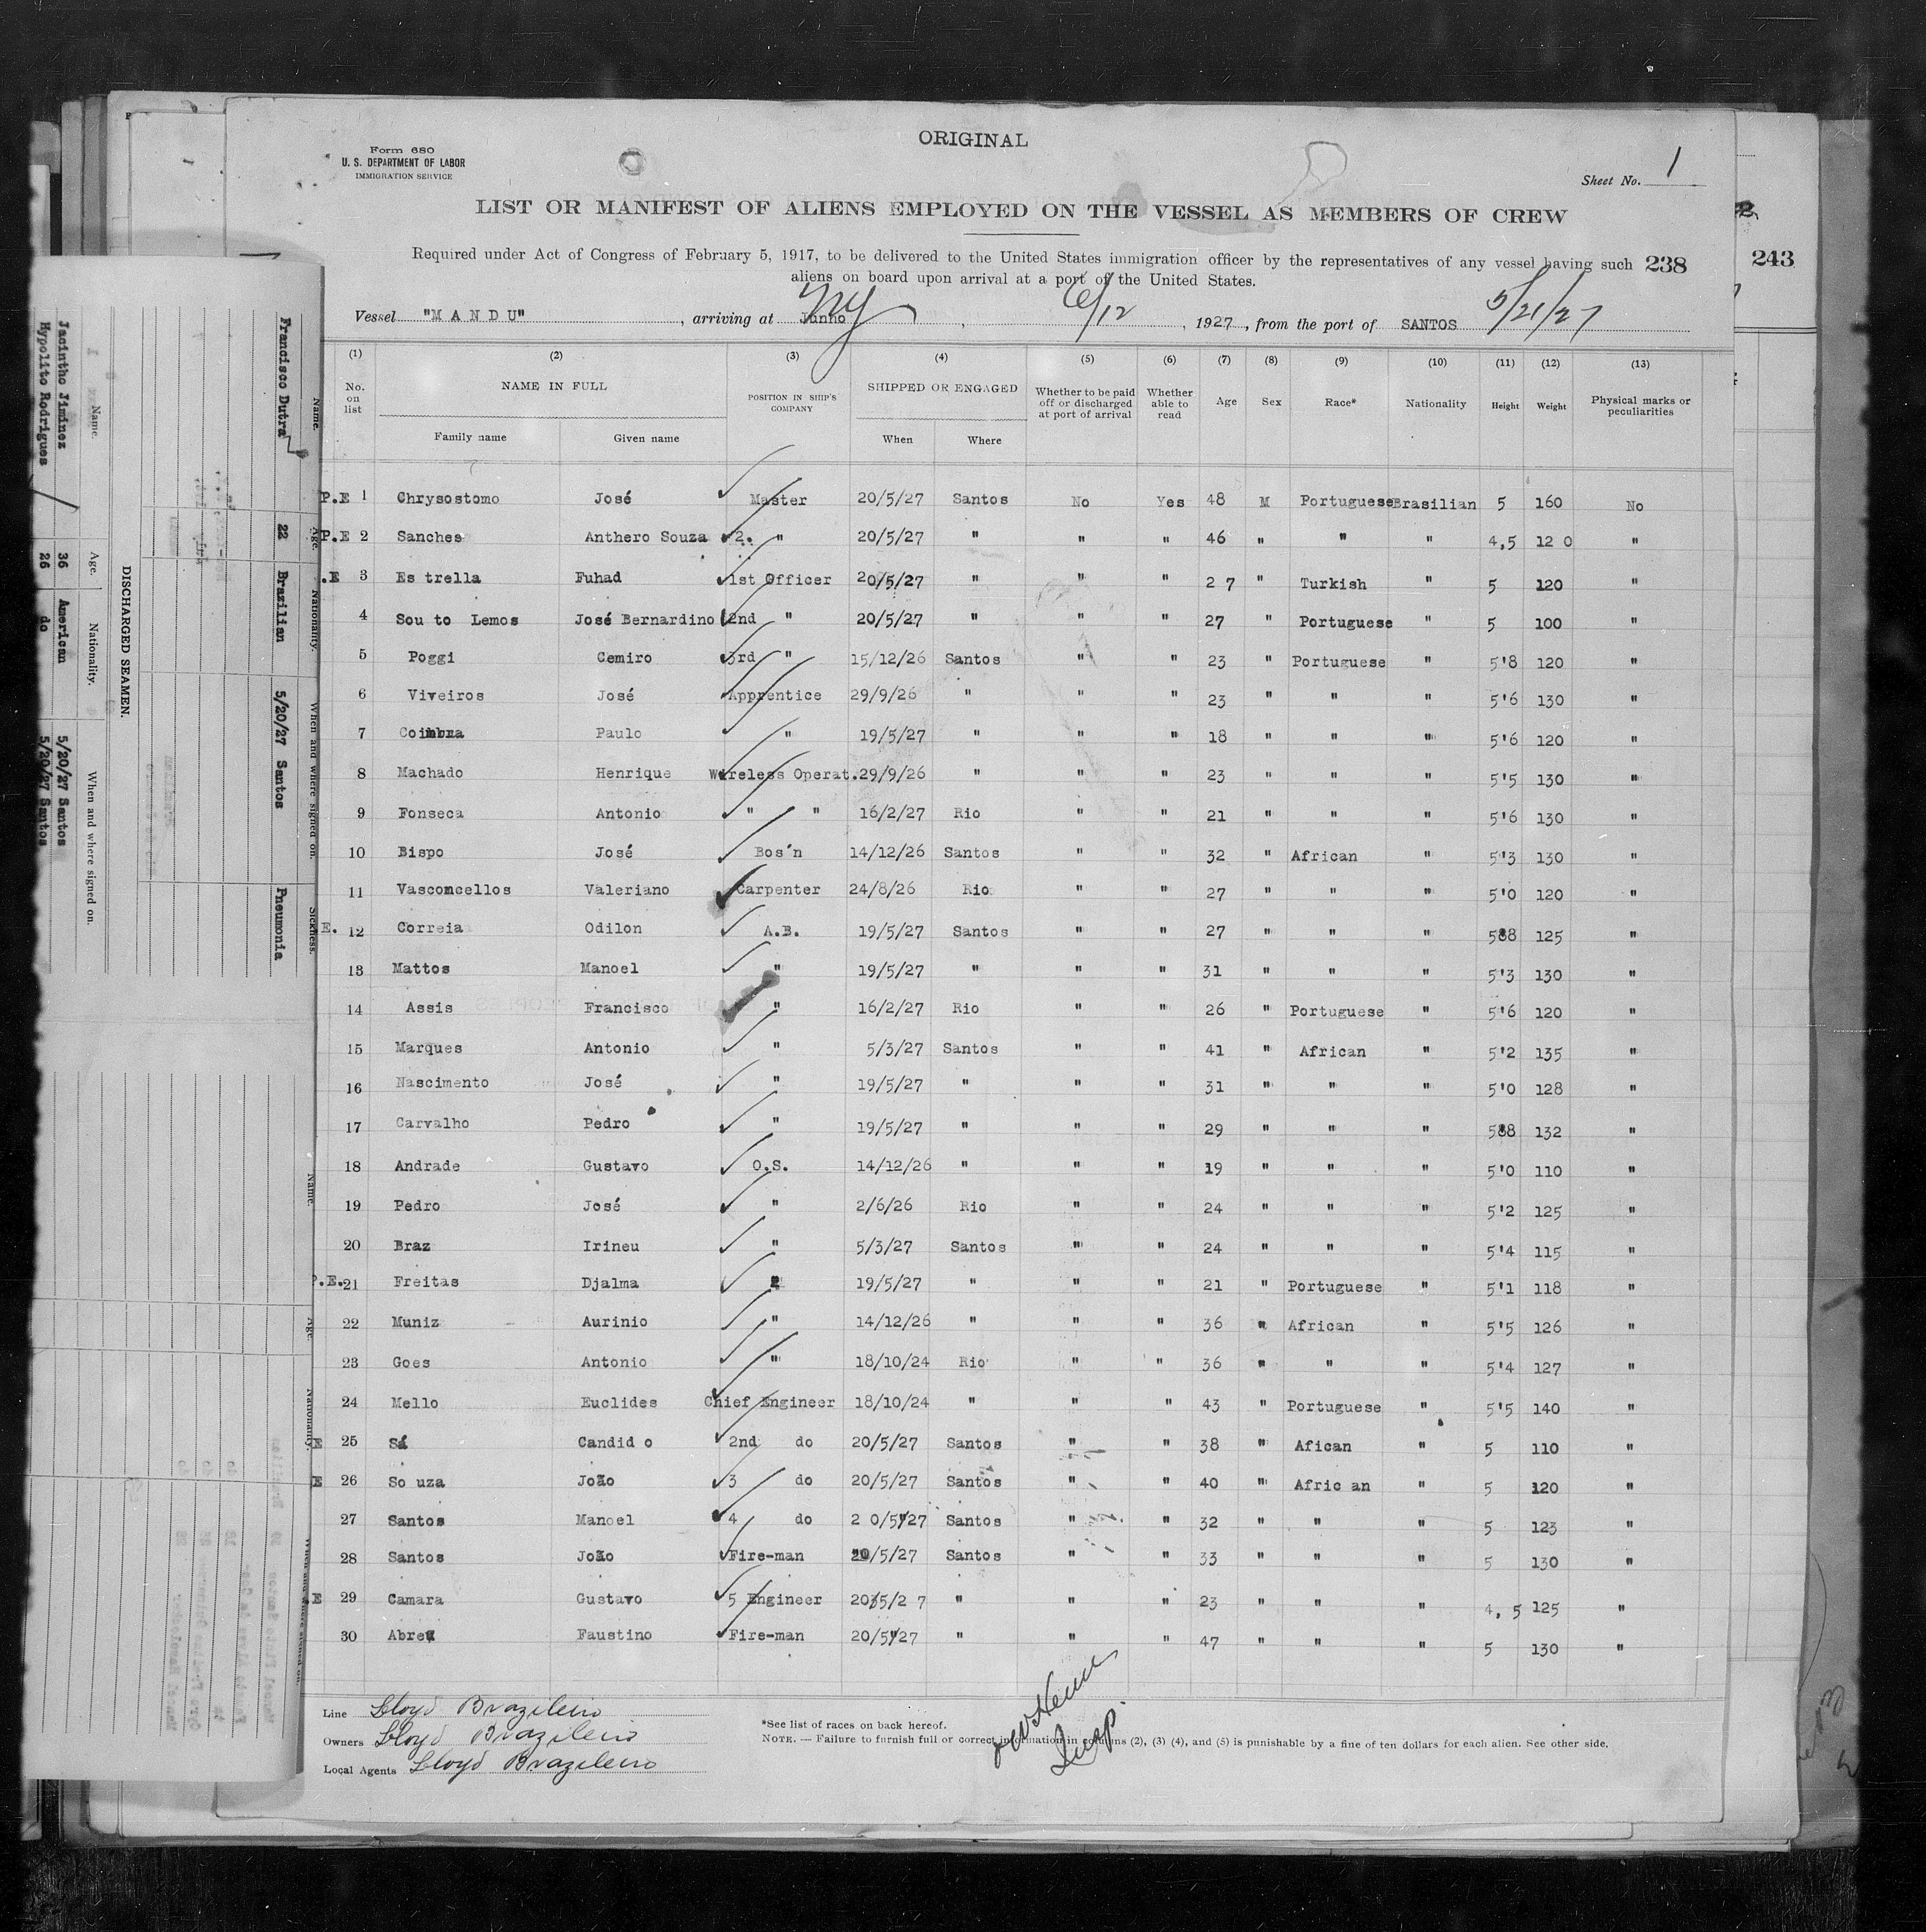 ORIGINAL
Form 680
U. S. DEPARTMENT OF LABOR
IMMIGRATION SERVICE
Sheet No. 1
LIST OR MANIFEST OF ALIENS EMPLOYED ON THE VESSEL AS MEMBERS OF CREW
Required under Act of Congress of February 5, 1917, to be delivered to the United States immigration officer by the representatives of any vessel having such 238
aliens on board upon arrival at a port of the United States.
243
Vessel "MANDU", arriving at Junho NY, 6/12, 1927, from the port of SANTOS 5/21/27
(1) (2) (3) (4) (5) (6) (7) (8) (9) (10) (11) (12) (13)
No. on list NAME IN FULL POSITION IN SHIP'S COMPANY SHIPPED OR ENGAGED Whether to be paid off or discharged at port of arrival Whether able to read Age Sex Race* Nationality Height Weight Physical marks or peculiarities
Family name Given name When Where
P.E 1 Chrysostomo José Master 20/5/27 Santos No Yes 48 M Portuguese Brasilian 5 160 No
P.E 2 Sanches Anthero Souza 2. " 20/5/27 " " " 46 " " " 4,5 12 0 "
.E 3 Es trella Fuhad 1st Officer 20/5/27 " " " 2 7 " Turkish " 5 120 "
4 Sou to Lemos José Bernardino 2nd " 20/5/27 " " " 27 " Portuguese " 5 100 "
5 Poggi Cemiro 3rd " 15/12/26 Santos " " 23 " Portuguese " 5'8 120 "
6 Viveiros José Apprentice 29/9/26 " " " 23 " " " 5'6 130 "
7 Coimbra Paulo " 19/5/27 " " " 18 " " " 5'6 120 "
8 Machado Henrique Wireless Operat. 29/9/26 " " " 23 " " " 5'5 130 "
9 Fonseca Antonio " " 16/2/27 Rio " " 21 " " " 5'6 130 "
10 Bispo José Bos'n 14/12/26 Santos " " 32 " African " 5'3 130 "
11 Vasconcellos Valeriano Carpenter 24/8/26 Rio " " 27 " " " 5'0 120 "
E. 12 Correia Odilon A.B. 19/5/27 Santos " " 27 " " " 5'8 125 "
13 Mattos Manoel " 19/5/27 " " " 31 " " " 5'3 130 "
14 Assis Francisco " 16/2/27 Rio " " 26 " Portuguese " 5'6 120 "
15 Marques Antonio " 5/3/27 Santos " " 41 " African " 5'2 135 "
16 Nascimento José " 19/5/27 " " " 31 " " " 5'0 128 "
17 Carvalho Pedro " 19/5/27 " " " 29 " " " 5'8 132 "
18 Andrade Gustavo O.S. 14/12/26 " " " 19 " " " 5'0 110 "
19 Pedro José " 2/6/26 Rio " " 24 " " " 5'2 125 "
20 Braz Irineu " 5/3/27 Santos " " 24 " " " 5'4 115 "
P.E. 21 Freitas Djalma " 19/5/27 " " " 21 " Portuguese " 5'1 118 "
22 Muniz Aurinio " 14/12/26 " " " 36 " African " 5'5 126 "
23 Goes Antonio " 18/10/24 Rio " " 36 " " " 5'4 127 "
24 Mello Euclides Chief Engineer 18/10/24 " " " 43 " Portuguese " 5'5 140 "
E 25 Sá Candid o 2nd do 20/5/27 Santos " " 38 " Afican " 5 110 "
E 26 So uza João 3 do 20/5/27 Santos " " 40 " Afric an " 5 120 "
27 Santos Manoel 4 do 2 0/5/27 Santos " " 32 " " " 5 123 "
28 Santos João Fire-man 20/5/27 Santos " " 33 " " " 5 130 "
E 29 Camara Gustavo 5 Engineer 20/5/2 7 " " " 23 " " " 4, 5 125 "
30 Abreu Faustino Fire-man 20/5/27 " " " 47 " " " 5 130 "
Line Lloyd Brazileiro
Owners Lloyd Brazileiro
Local Agents Lloyd Brazileiro
*See list of races on back hereof.
NOTE. — Failure to furnish full or correct information in columns (2), (3) (4), and (5) is punishable by a fine of ten dollars for each alien. See other side.
Insp.
Name. Age. Nationality. When and where signed on. Sickness.
Francisco Dutra 22 Brazilian 5/20/27 Santos Pneumonia
DISCHARGED SEAMEN.
Name. Age. Nationality. When and where signed on.
Jacintho Jiminez 36 American 5/20/27 Santos
Hypolito Rodrigues 26 do 5/20/27 Santos
Name. Age. Nationality. When and where signed on.